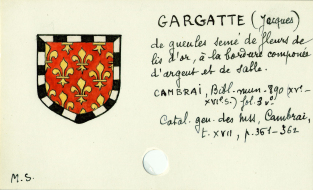 GARGATTE (Jacques)
de gueules semé de fleurs de
lis d'or, à la bordure componée
d'argent et de sable.
CAMBRAI, Bibl. mun. 890 (XVe-
XVIe s.) fol. 3 v°
Catal. gen. des mss, Cambrai,
t. XVII, p. 361-362
M.S.